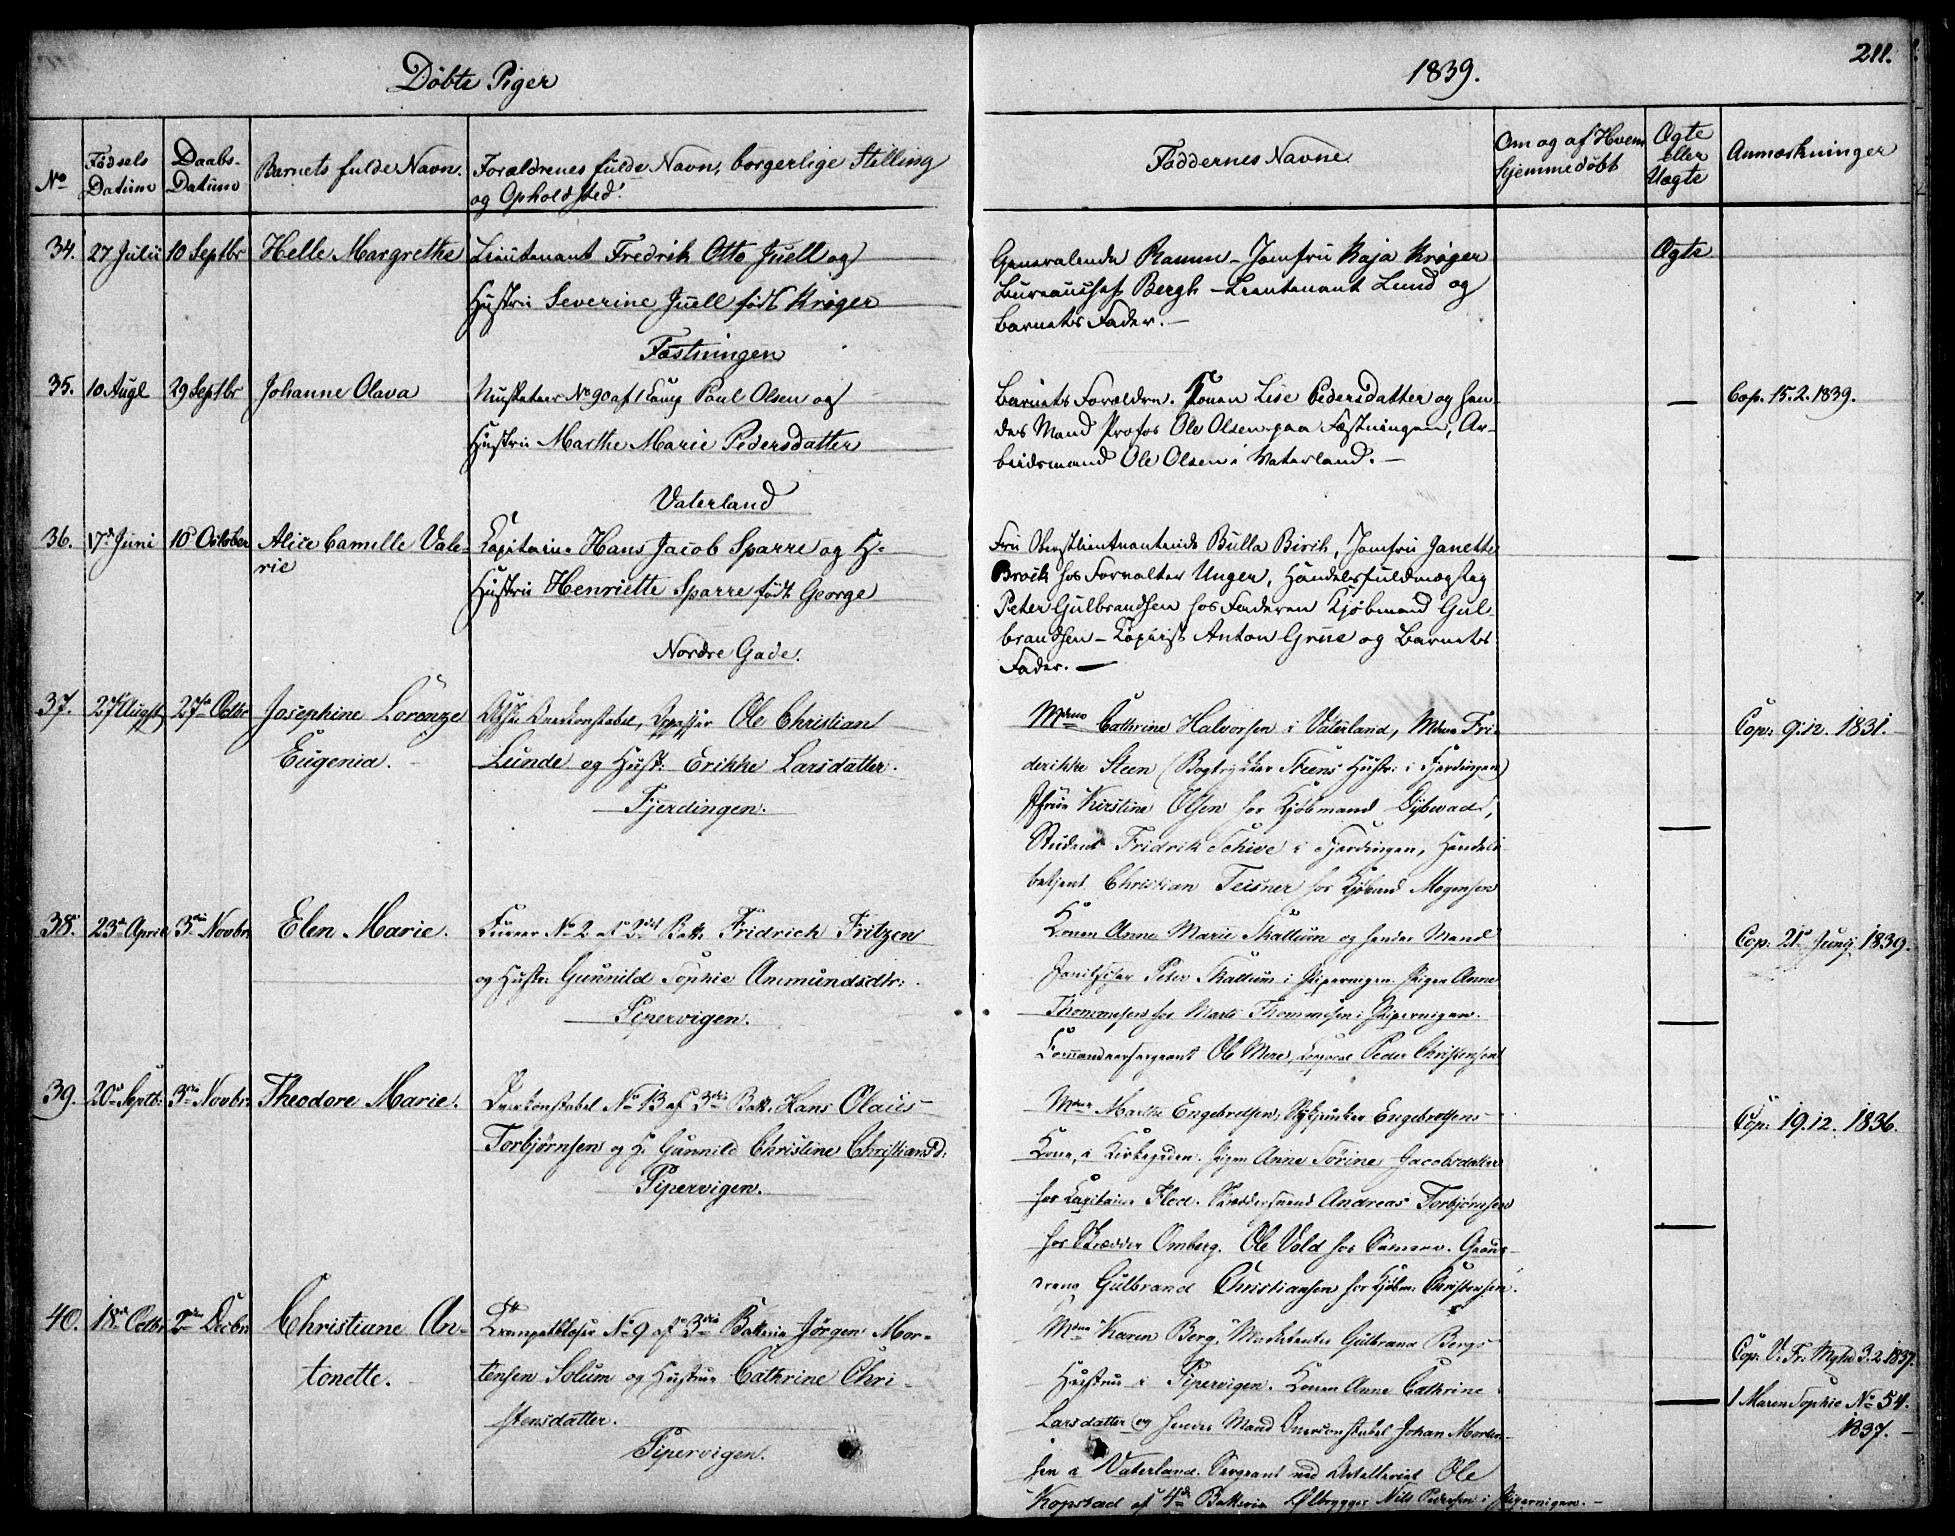 Døbte Piger
1839.
211.
No
Fødsels Datum
Daabs-Datum
Barnets fulde Navn.
Forældrenes fulde Navn, borgerlige Stilling
og Opholdsted.
Faddernes Navne.
Om og af Hvem hjemmedøbt
Ægte eller Uægte
Anmærkninger
34. 27 Julii 10 Septbr Helle Margrethe
Lieutenant Fredrik Otto Juell og
Hustru Severine Juell født Krøger
Fæstningen
Generalinde Ramm – Jomfru Kaja Krøger
Bureauchef Bergh – Lieutenant Lund og
Barnets Fader. –
Ægte
35. 10 Augt 29 Septbr Johanne Olava
Musketeer No 90 af 1 Comp Poul Olsen og
Hustru Marthe Marie Pedersdatter
Vaterland
Barnets Forældre. Konen Lise Pedersdatter og hen-
des Mand Profos Ole Olsen paa Fæstningen, Ar-
beidsmand Ole Olsen i Vaterland. –
Cop. 15.2.1839.
36. 17d Juni 10d October Alice Camille Vale-
rie
Kapitain Hans Jacob Sparre og H.
Hustru Henriette Sparre født George
Nordre Gade.
Fru Oberstlieutnantinde Bulla Birch, Jomfru Janette
Brock hos Forvalter Unger, Handelsfuldmægtig
Peter Gulbrandsen hos Faderen Kjøbmand Gul-
brandsen – Kopiist Anton Grüe og Barnets
Fader. –
37. 27de Augst 27de Octbr Josephine Lorenze
Eugenia.
Overkonstabel, Ole Christian
Lunde og Hust: Erikke Larsdatter.
Fjerdingen.
Mdme Cathrine Halvorsen i Vaterland, Mdme Fri-
derikke Steen (Bogtrykker Steens Hustr: i Fjerdingen)
Jfrue Kirstine Olsen hos Kjøbmand Dybwad,
Student Fridrik Schive i Fjerdingen, Handels
betjent Christian Teisner hos Kjøbmd Mogensen
Cop: 9.12. 1831.
38. 23de April 3die Novbr: Elen Marie.
No 2 af 3die Batt. Fridrich Fritzen
og Hustr: Gunnild Sophie Ammundsdtr:
Pipervigen.
Konen Anne Marie Skallum og hendes Mand
Peter Skallum i Pipervigen. Pigen Anne
Thommesen hos Marte Thommesen i Pipervigen.
Commandeersergeant Ole Moe, Corporal Peder Christensen
Cop: 21de Junij 1839.
39. 20de Septb: 3die Novbr: Theodore Marie.
Overkonstabel No 13 af 3die Batt. Hans Olaus
Torbjørnsen og H. Gunnild Christine Christiansd:
Pipervigen.
Mdme Marthe Engebretsen, Engebretsens
Kone, i Kirkegaden. Pigen Anne Sørine Jacobsdatter
hos Capitaine Flod. Skræddersvend Andreas Torbjørnsen
hos Skrædder Omberg. Ole Vold hos Gaards-
dreng Gulbrand Christiansen hos Kjøbm. Christensen.
Cop: 19.12. 1836.
40. 18de Octbr 2den Decbr Christiane An-
tonette.
No 9 af 3die Batterie Jørgen Mor-
tensen Solum og Hustrue Cathrine Chri-
stensdatter.
Pipervigen.
Mdme Karen Berg, Marketenter Gulbrand Bergs
Hustrue i Pipervigen. Konen Anne Cathrine
Larsdatter og hendes Mand Overconstabel Johan Morten-
sen i Vaterland. Sergeant ved Artilleriet Ole
Kopstad af 4de Batterie Ølbrygger Nils Pedersen i Pipervigen. –
Cop: V. Fr. Mghd 3.2.1837.
1 Maren Sophie No 54.
1837. –